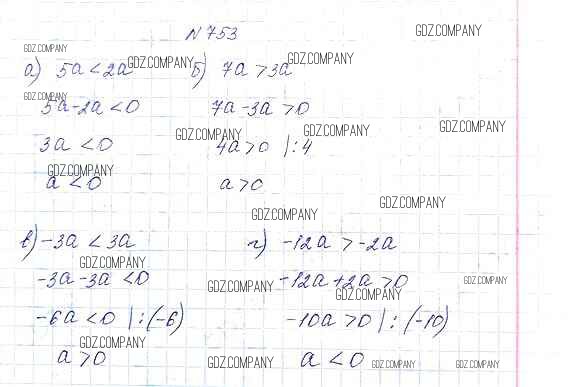 N 753
GDZ.COMPANY
GDZ.COMPANY
а) 5a < 2a
GDZ.COMPANY
б) 7a > 3a
GDZ.COMPANY
GDZ.COMPANY
5a - 2a < 0
7a - 3a > 0
GDZ.COMPANY
GDZ.COMPANY
GDZ.COMPANY
3a < 0
4a > 0 |:4
GDZ.COMPANY
a < 0
a > 0
GDZ.COMPANY
GDZ.COMPANY
в) -3a < 3a
г) -12a > -2a
GDZ.COMPANY
-3a - 3a < 0
-12a + 2a > 0
GDZ.COMPANY
GDZ.COMPANY
GDZ.COMPANY
-6a < 0 |:(-6)
-10a > 0 |:(-10)
GDZ.COMPANY
a > 0
a < 0
GDZ.COMPANY
GDZ.COMPANY
GDZ.COMPANY